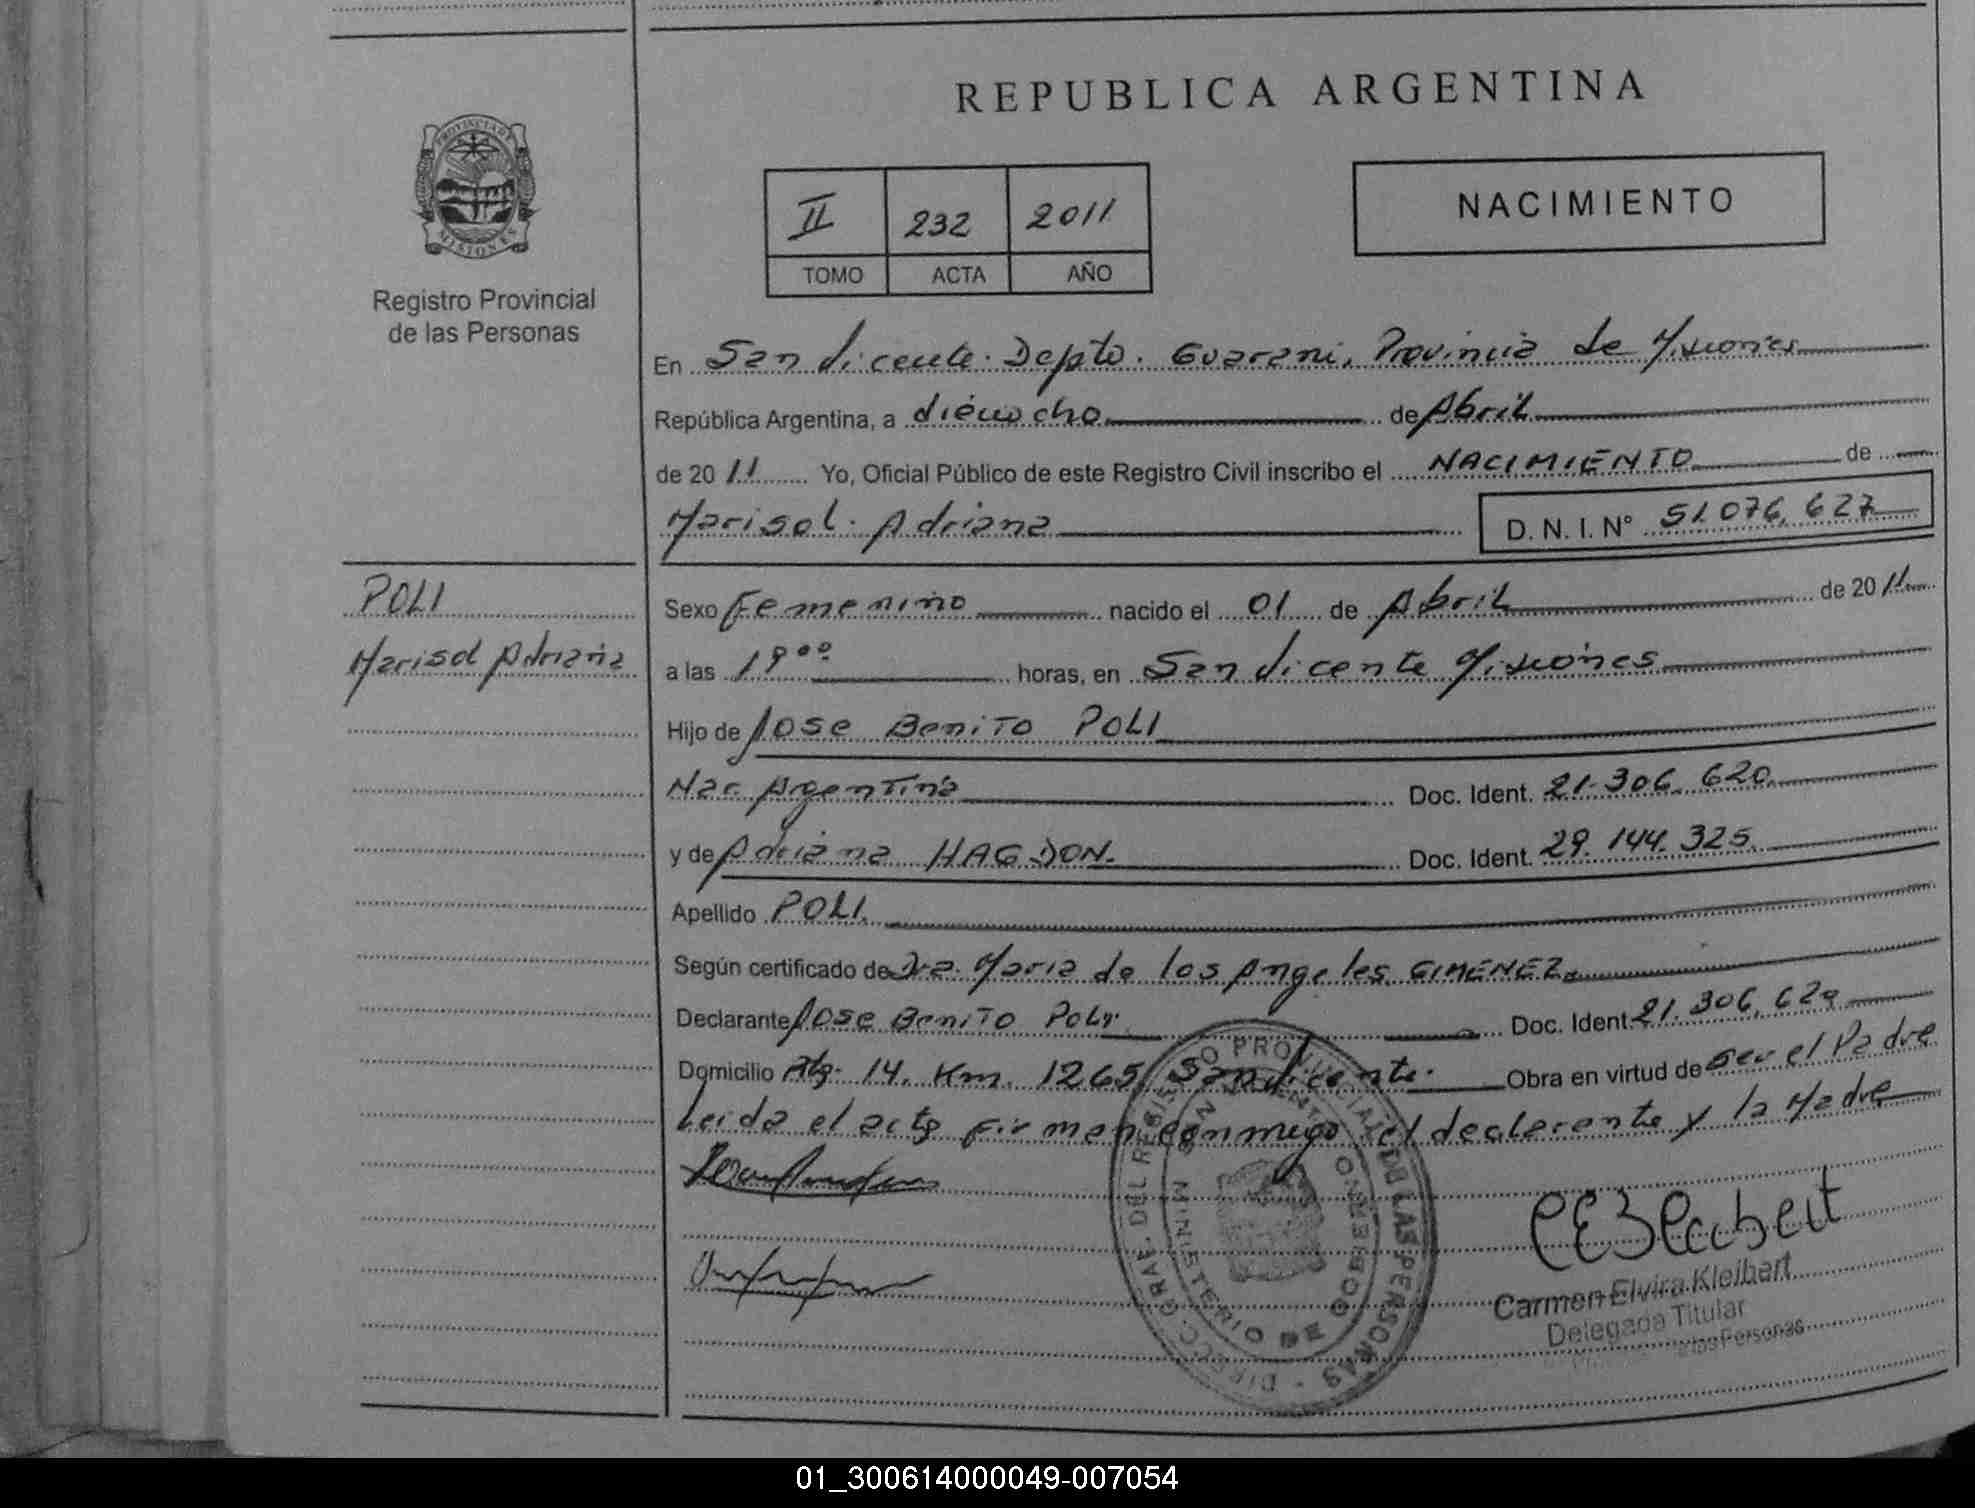 REPUBLICA ARGENTINA
PROVINCIA DE
MISIONES
Registro Provincial
de las Personas
II 232 2011
TOMO ACTA AÑO
NACIMIENTO
En San Vicente. Depto. Guarani. Provincia de Misiones
República Argentina, a dieciocho de Abril
de 2011 Yo, Oficial Público de este Registro Civil inscribo el NACIMIENTO de
Marisol Adriana D. N. I. N° 51.076.627
POLI
Marisol Adriana
Sexo Femenino nacido el 01 de Abril de 2011
a las 19⁰⁰ horas, en San Vicente Misiones
Hijo de Jose Benito POLI
Nac. Argentina Doc. Ident. 21.306.620
y de Adriana HAGDON. Doc. Ident. 29.144.325
Apellido POLI
Según certificado de Dra. Maria de los Angeles GIMENEZ
Declarante Jose Benito Poli Doc. Ident. 21.306.620
Domicilio Rta. 14. Km. 1265 San Vicente. Obra en virtud de ser el Padre
Leida el acta firman conmigo el declarante y la Madre
DIREC. GRAL. DEL REGISTRO PROVINCIAL DE LAS PERSONAS
MINISTERIO DE GOBIERNO
Carmen Elvira Kleibert
Delegada Titular
de las Personas
01_300614000049-007054